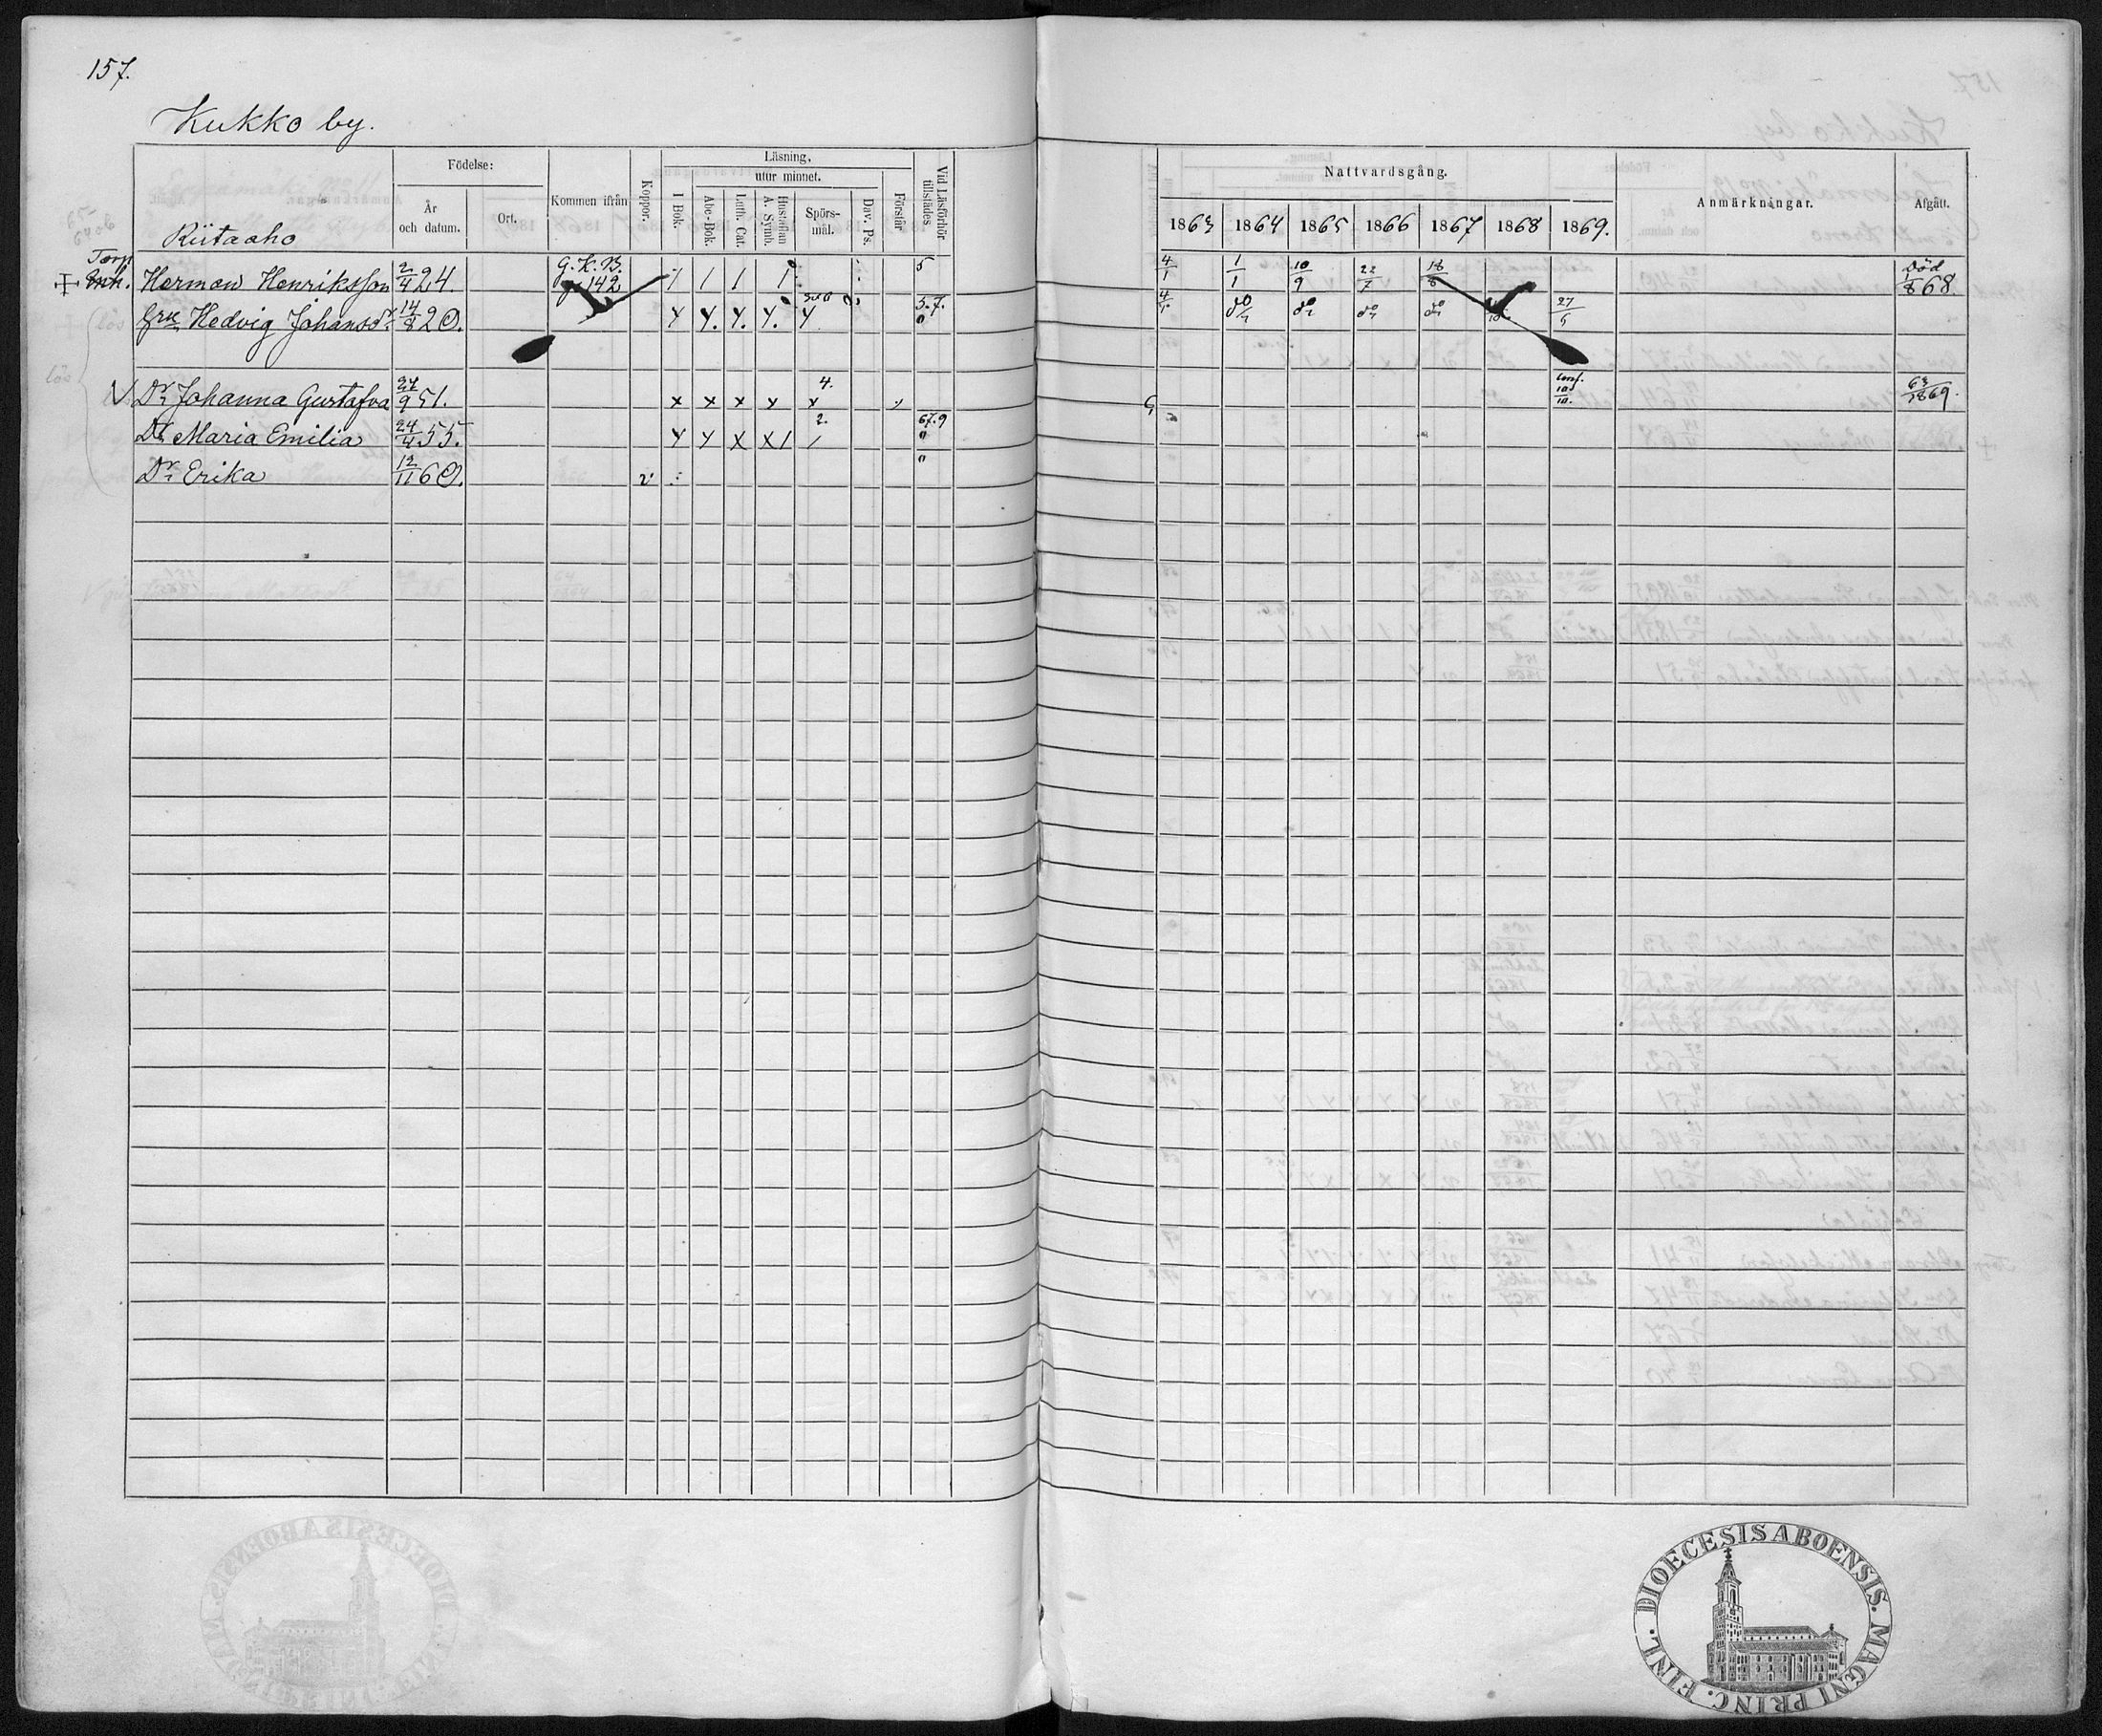 157.
Kukko by.
Födelse:
År och datum.
Ort.
Kommen ifrån
Koppor.
Läsning,
I Bok.
utur minnet.
Abc-Bok.
Luth. Cat.
Hustaflan A. Symb.
Spörs-mål.
Dav. Ps.
Förstår
Vid Läsförhör tillstädes
Nattvardsgång.
1863 1864 1865 1866 1867 1868 1869.
Anmärkningar.
Afgått.
Riitaaho
Torp
Inh. Herman Henriksson 2/4 24. G. K. B. 142 5 4/1 1/1 10/9 22/7 18/8 Död 1/8 68.
Hru Hedvig Johansdr 14/8 20. 5.7. 4/1 do do do do 27/6
lös
Dr Johanna Gustafva 9 51. x x x x x 4. conf. 10/10. 63/1869.
Dr Maria Emilia 24/4 55. 2. 67.9
Dr Erika 12/11 60. v
DIOECESIS ABOENSIS. MAGNI PRINC. FINL.